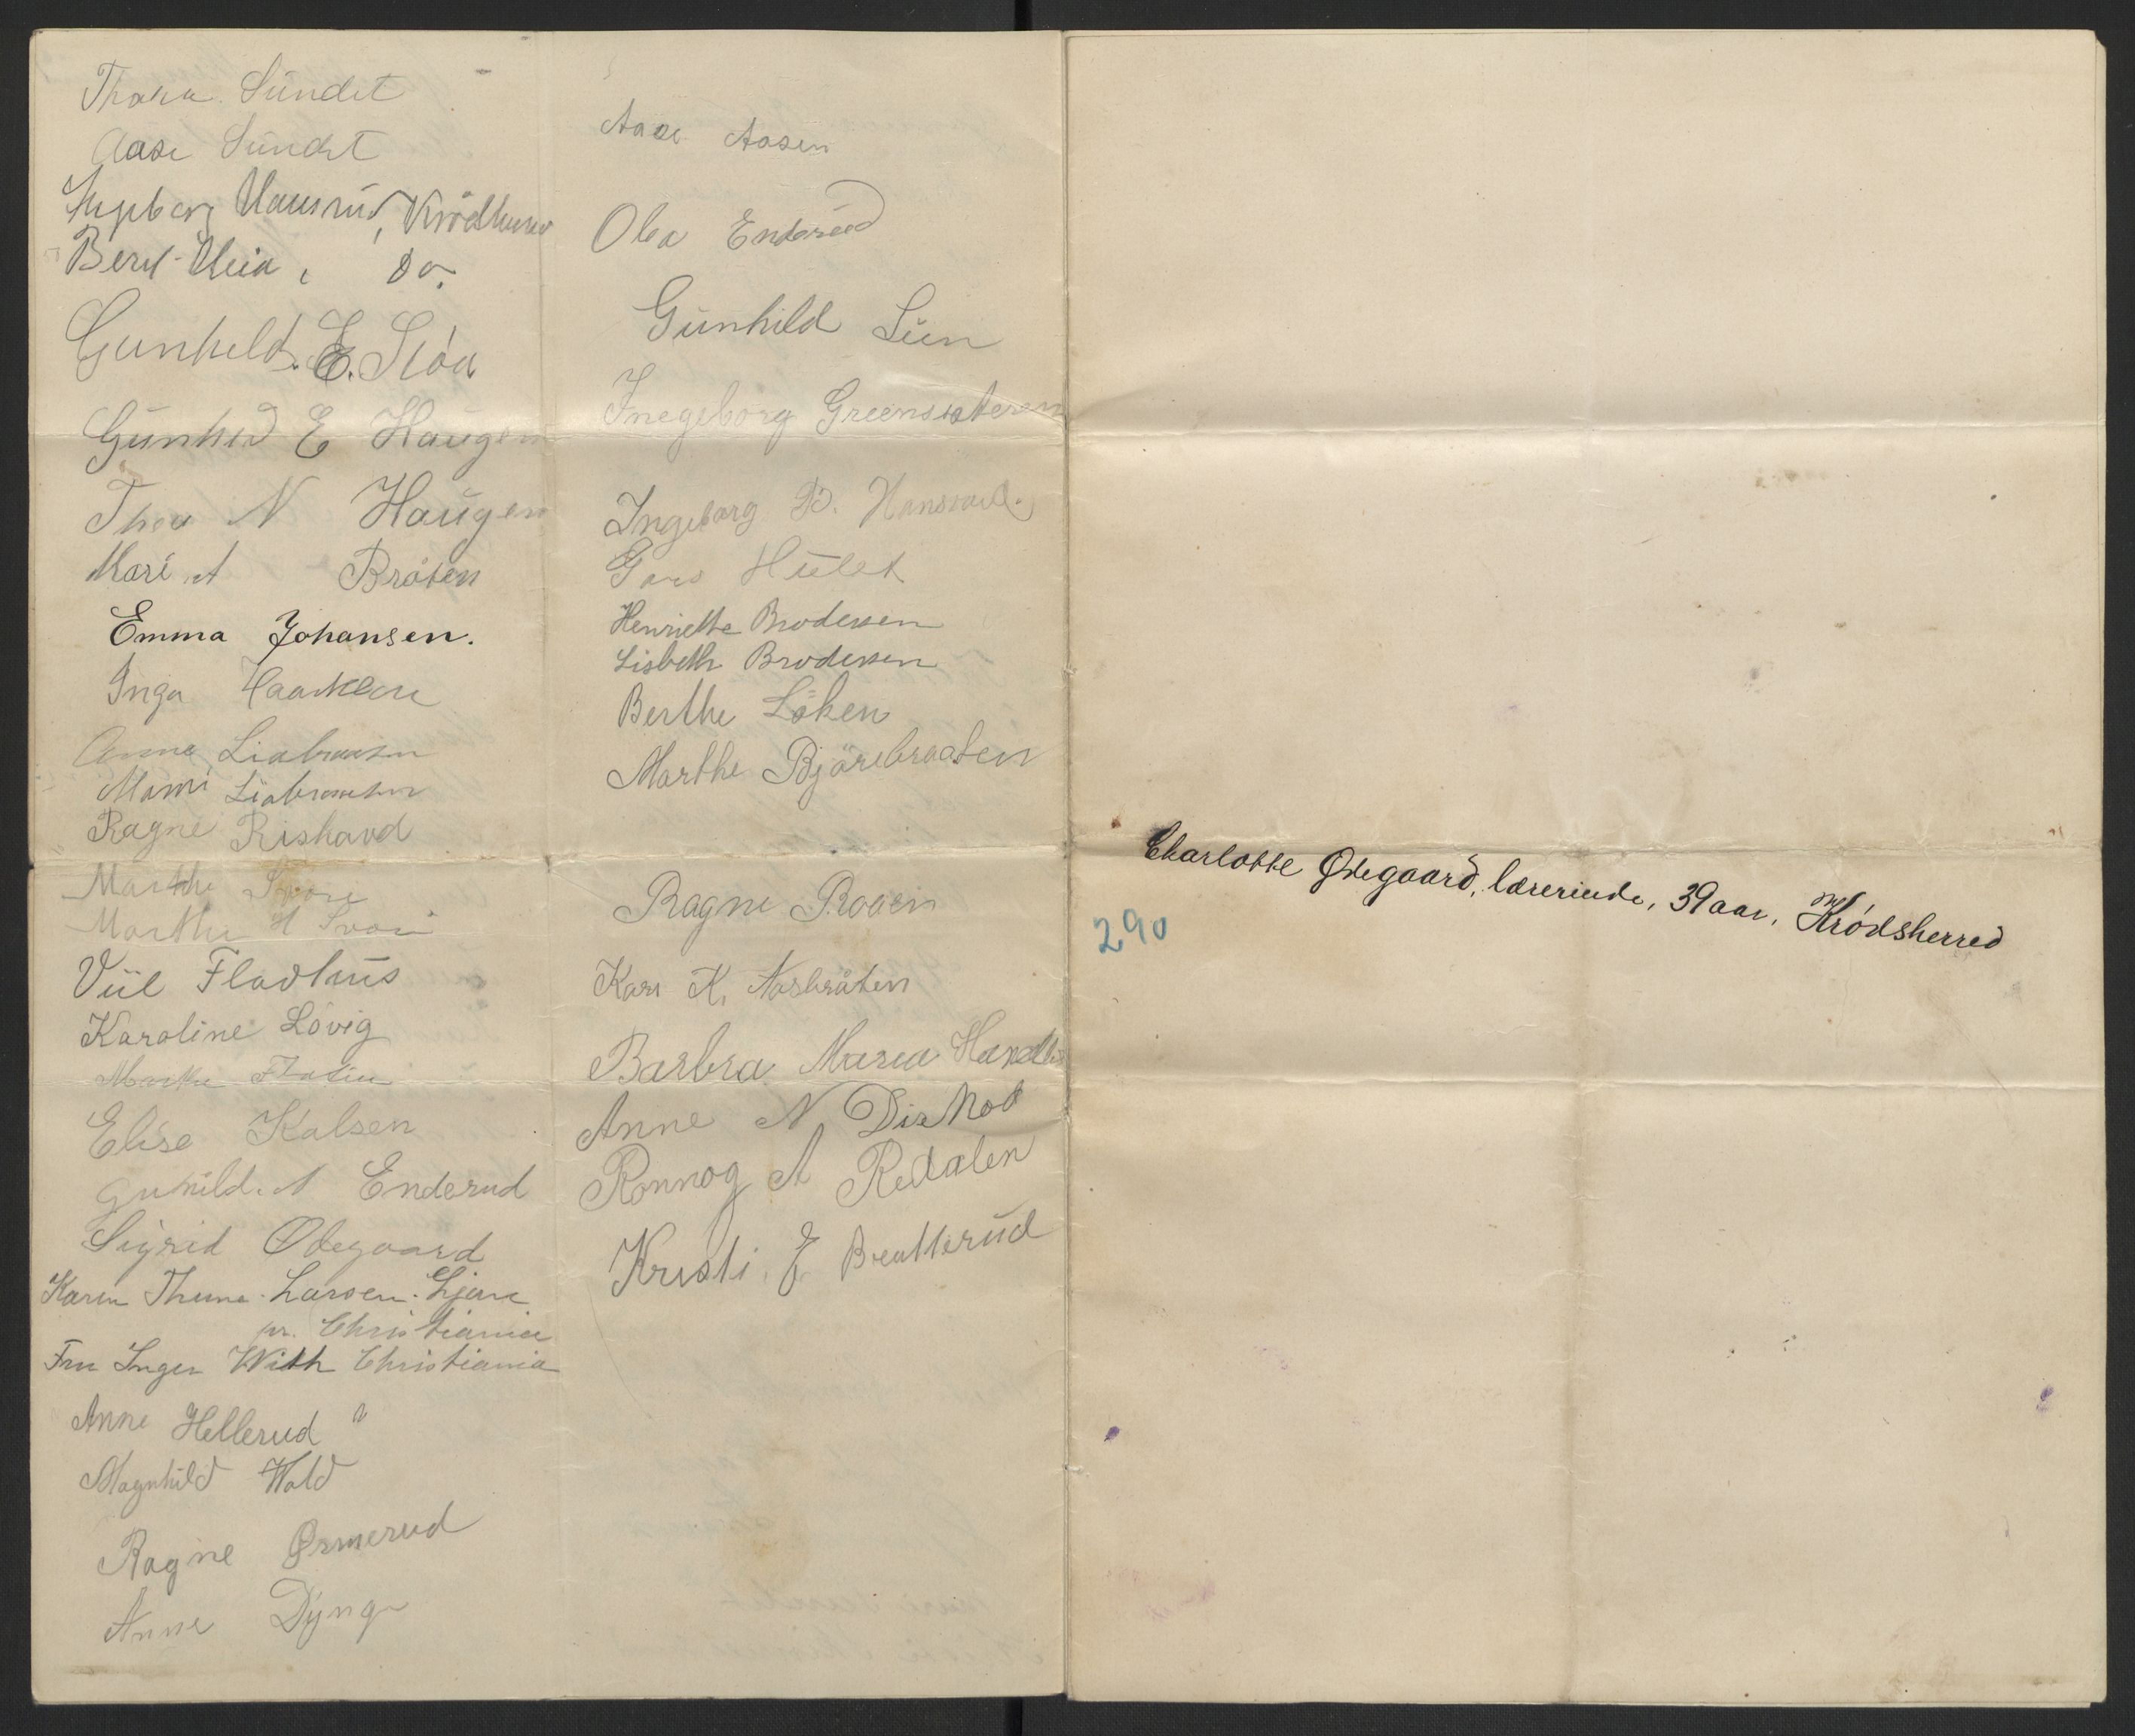 Thora Sundet
Aase Sundet
Ingeborg Hamsrud, Krödsherred
Berit Uleia, do.
Gunhild. E. Slöa
Gunhild E Haugen
Thea N Haugen
Mari A Bråten
Emma Johansen.
Inga
Anna Liabraaten
Mami Liabraaten
Ragne Rishavd
Marthe Svore
Marthe H Svore
Viil Fladhus
Karoline Lövig
Marthe
Elise Kalsen
Guhild. A Enderud
Sigrid Ødegaard
Karen Thune-Larsen. Ljan
pr. Christiania
Fru Inger With Christiania
Anne Hellerud "
Magnhild Wold
Ragne Ormerud
Anne Dynge
Aase Aasen
Olea Enderud
Gunhild Lien
Inegeborg Greensæteren
Ingeborg B. Hansrud.
Goro Hulet
Henriette Brodersen
Lisbeth Brodersen
Berthe Löken
Marthe Björebraaten
Ragne Roaen
Kari K. Nasbråten
Barbra Maria
Anne N Diskot
Ronnog A Redalen
Kristi E Bratterud
Charlotte Ødegaard, lærerinde, 39 aar, Krødsherred
290